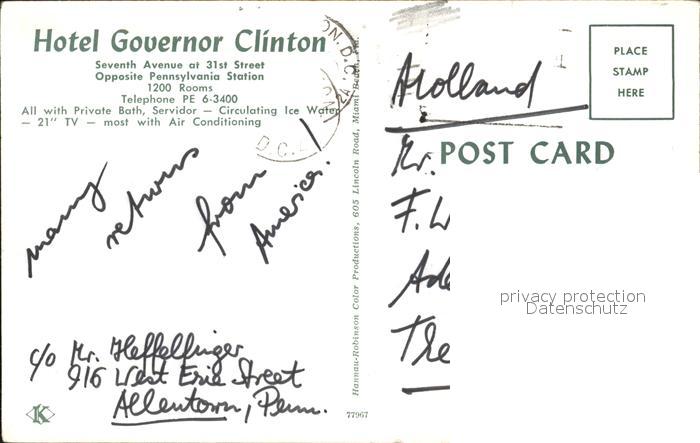 Hotel Governor Clinton
Seventh Avenue at 31st Street
Opposite Pennsylvania Station
1200 Rooms
Telephone PE 6-3400
All with Private Bath, Servidor — Circulating Ice Water
— 21" TV — most with Air Conditioning
many
returns
from
America!
c/o Mr. Heffelfinger
916 West Erie Street
Allentown, Penn.
K
77967
Hannau-Robinson Color Productions, 605 Lincoln Road, Miami Beach,
ON, D.C.
D.C.
PLACE
STAMP
HERE
Holland
POST CARD
Mr.
F.
The
privacy protection
Datenschutz